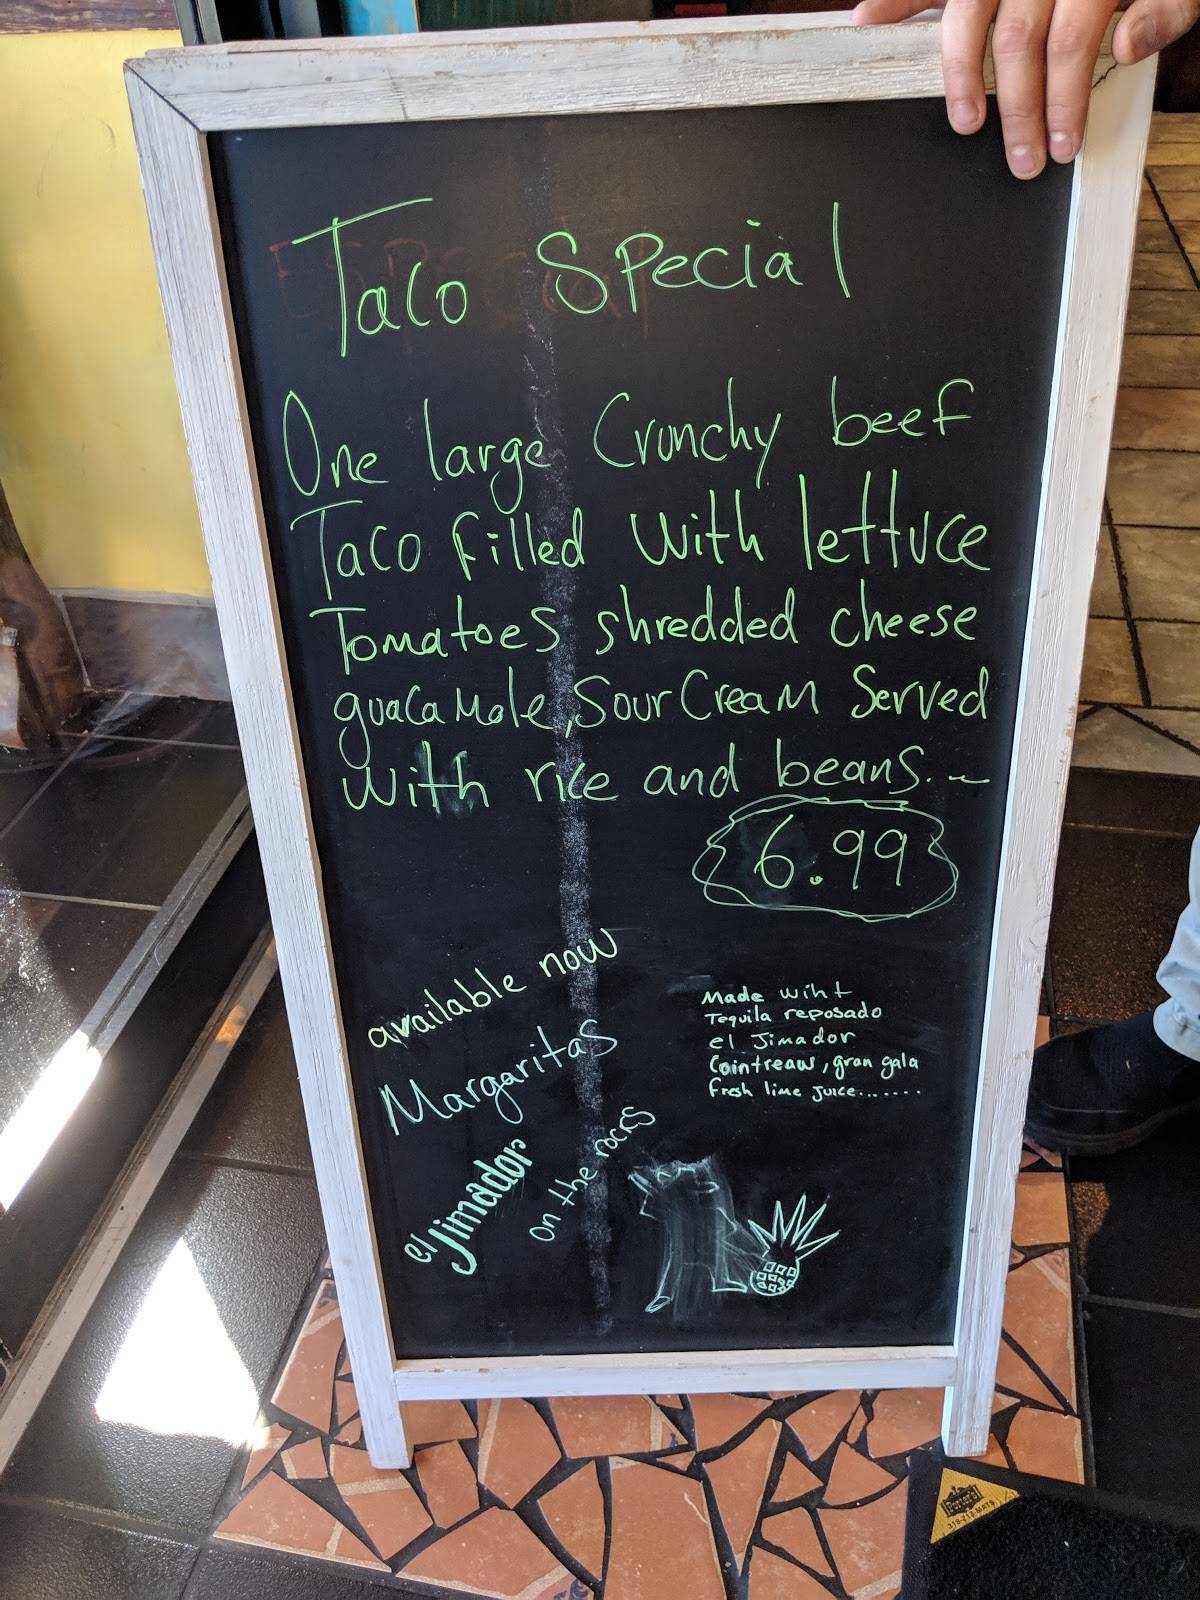 Taco Special
One large Crunchy beef
Taco filled with lettuce
Tomatoes shredded cheese
guacamole, Sour Cream Served
with rice and beans...
6.99
available now
Margaritas
el Jimador
on the rocks
Made wiht
Tequila reposado
el Jimador
Cointreau, gran gala
fresh lime juice.......